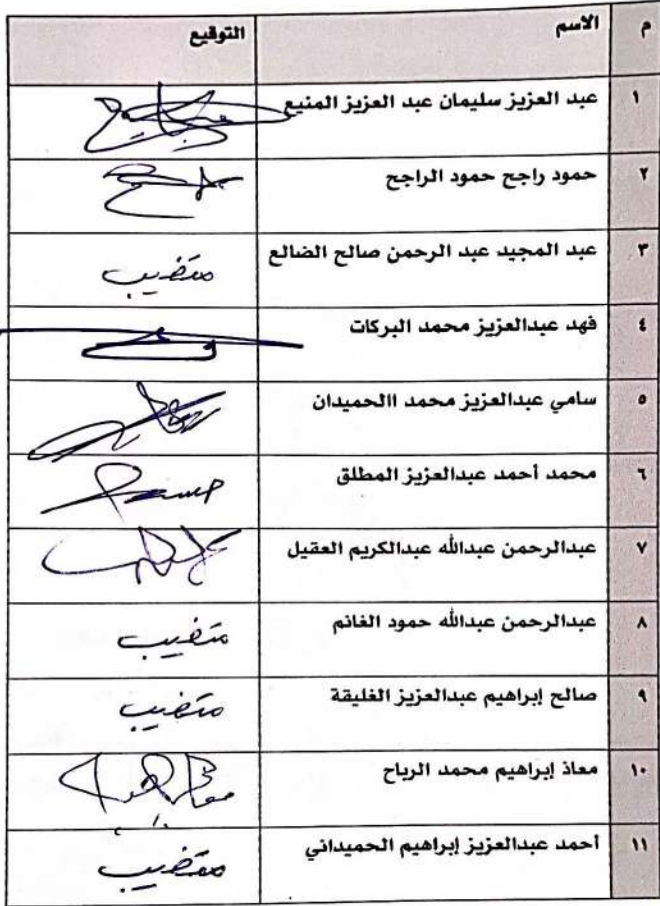 م الاسم التوقيع
١ عبد العزيز سليمان عبد العزيز المنيع
٢ حمود راجح حمود الراجح
٣ عبد المجيد عبد الرحمن صالح الضالع متغيب
٤ فهد عبدالعزيز محمد البركات
٥ سامي عبدالعزيز محمد االحميدان
٦ محمد أحمد عبدالعزيز المطلق
٧ عبدالرحمن عبدالله عبدالكريم العقيل
٨ عبدالرحمن عبدالله حمود الغانم متغيب
٩ صالح إبراهيم عبدالعزيز الغليقة متغيب
١٠ معاذ إبراهيم محمد الرباح
١١ أحمد عبدالعزيز إبراهيم الحميداني متغيب